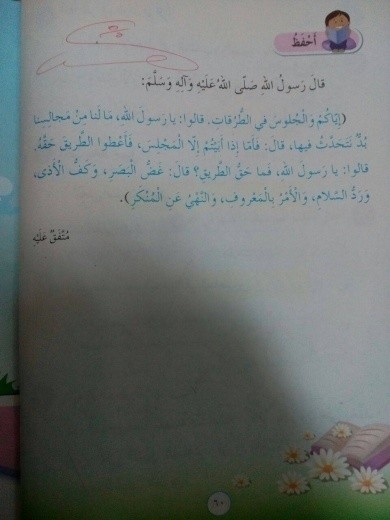 أَحْفَظُ
قالَ رَسولُ اللهِ صَلّى اللهُ عَلَيْهِ وَآلِهِ وَسَلَّمَ:
(إيّاكُمْ وَالْجُلوسَ في الطُّرُقاتِ. قالوا: يا رَسولَ اللهِ، مَا لَنا مِنْ مَجالِسِنا
بُدٌّ نَتَحَدَّثُ فيها، قالَ: فَأَمّا إِذا أَبَيْتُمْ إِلّا الْمَجْلِسَ، فَأَعْطوا الطَّريقَ حَقَّهُ،
قالوا: يا رَسولَ اللهِ، فَما حَقُّ الطَّريقِ؟ قالَ: غَضُّ الْبَصَرِ، وَكَفُّ الْأَذى،
وَرَدُّ السَّلامِ، وَالْأَمْرُ بِالْمَعْروفِ، وَالنَّهْيُ عَنِ الْمُنْكَرِ).
مُتَّفَقٌ عَلَيْهِ
٦٠